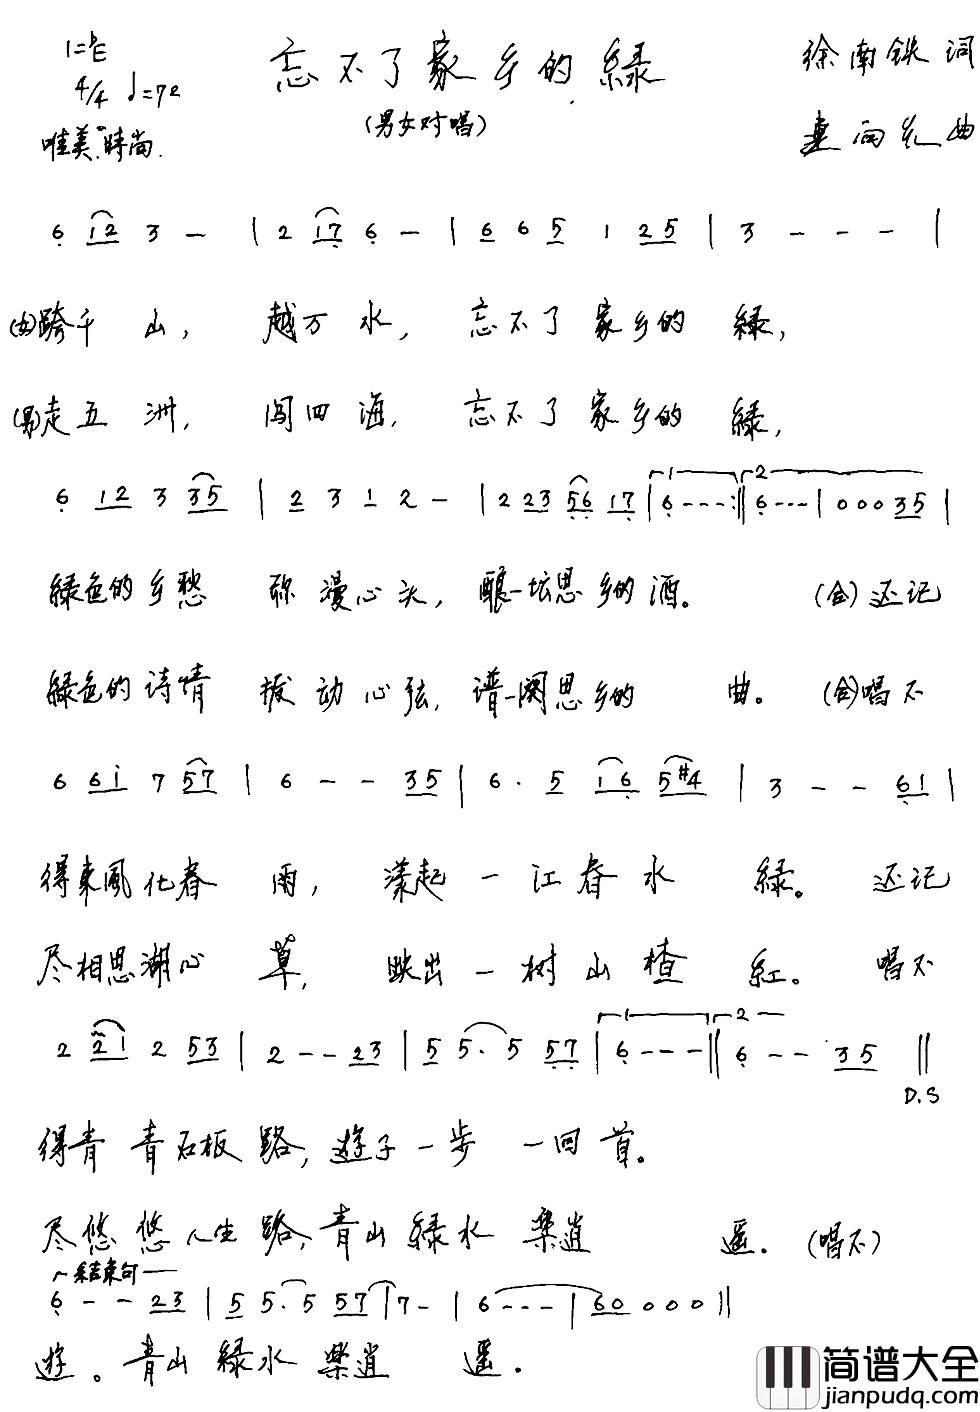 1=♭E
忘不了家乡的緑
徐南铁 词
4/4 ♩=72
(男女对唱)
唯美.時尚.
向 曲
6̣ 1̲2̲ 3 - | 2 1̲7̲̣ 6̣ - | 6̲̣ 6 5̲ 1 2̲5̲ | 3 - - - |
(女)跨千 山, 越万 水, 忘不了 家乡的 緑,
(男)走五 洲, 闯四 海, 忘不了 家乡的 緑,
6̣ 1̲2̲ 3 3̲5̲ | 2̲ 3 1̲ 2 - | 2 2̲3̲ 5̲̣6̲̣ 1̲7̲̣ | 6̣ - - - :‖ 6̣ - - - | 0 0 0 3̲5̲ |
緑色的乡愁 弥漫心头, 酿一坛思乡的酒。 (合)还记
緑色的诗情 拨动心弦, 谱一阕思乡的 曲。 (合)唱不
6 6̲i̲ 7 5̲7̲ | 6 - - 3̲5̲ | 6 · 5̲ 1̲6̲̣ 5̲#4̲ | 3 - - 6̲̣1̲ |
得東風化春 雨, 漾起一江春水 緑。 还记
尽相思湖心 草, 映出一树山楂 紅。 唱不
2 2̲1̲ 2 5̲3̲ | 2 - - 2̲3̲ | 5̲ 5· 5 5̲̣7̲̣ | 6̣ - - - ‖ 6̣ - - 3̲5̲ ‖
D.S
得青青石板路, 遊子一步 一回首。
尽悠悠人生路, 青山緑水 樂逍 遥. (唱不)
结束句
6̣ - - 2̲3̲ | 5̲ 5· 5 5̲7̲ | 7 - | 6 - - - | 6̲0̲ 0 0 0 ‖
遊。青山緑水 樂逍 遥.
简谱大全
jianpudq.com